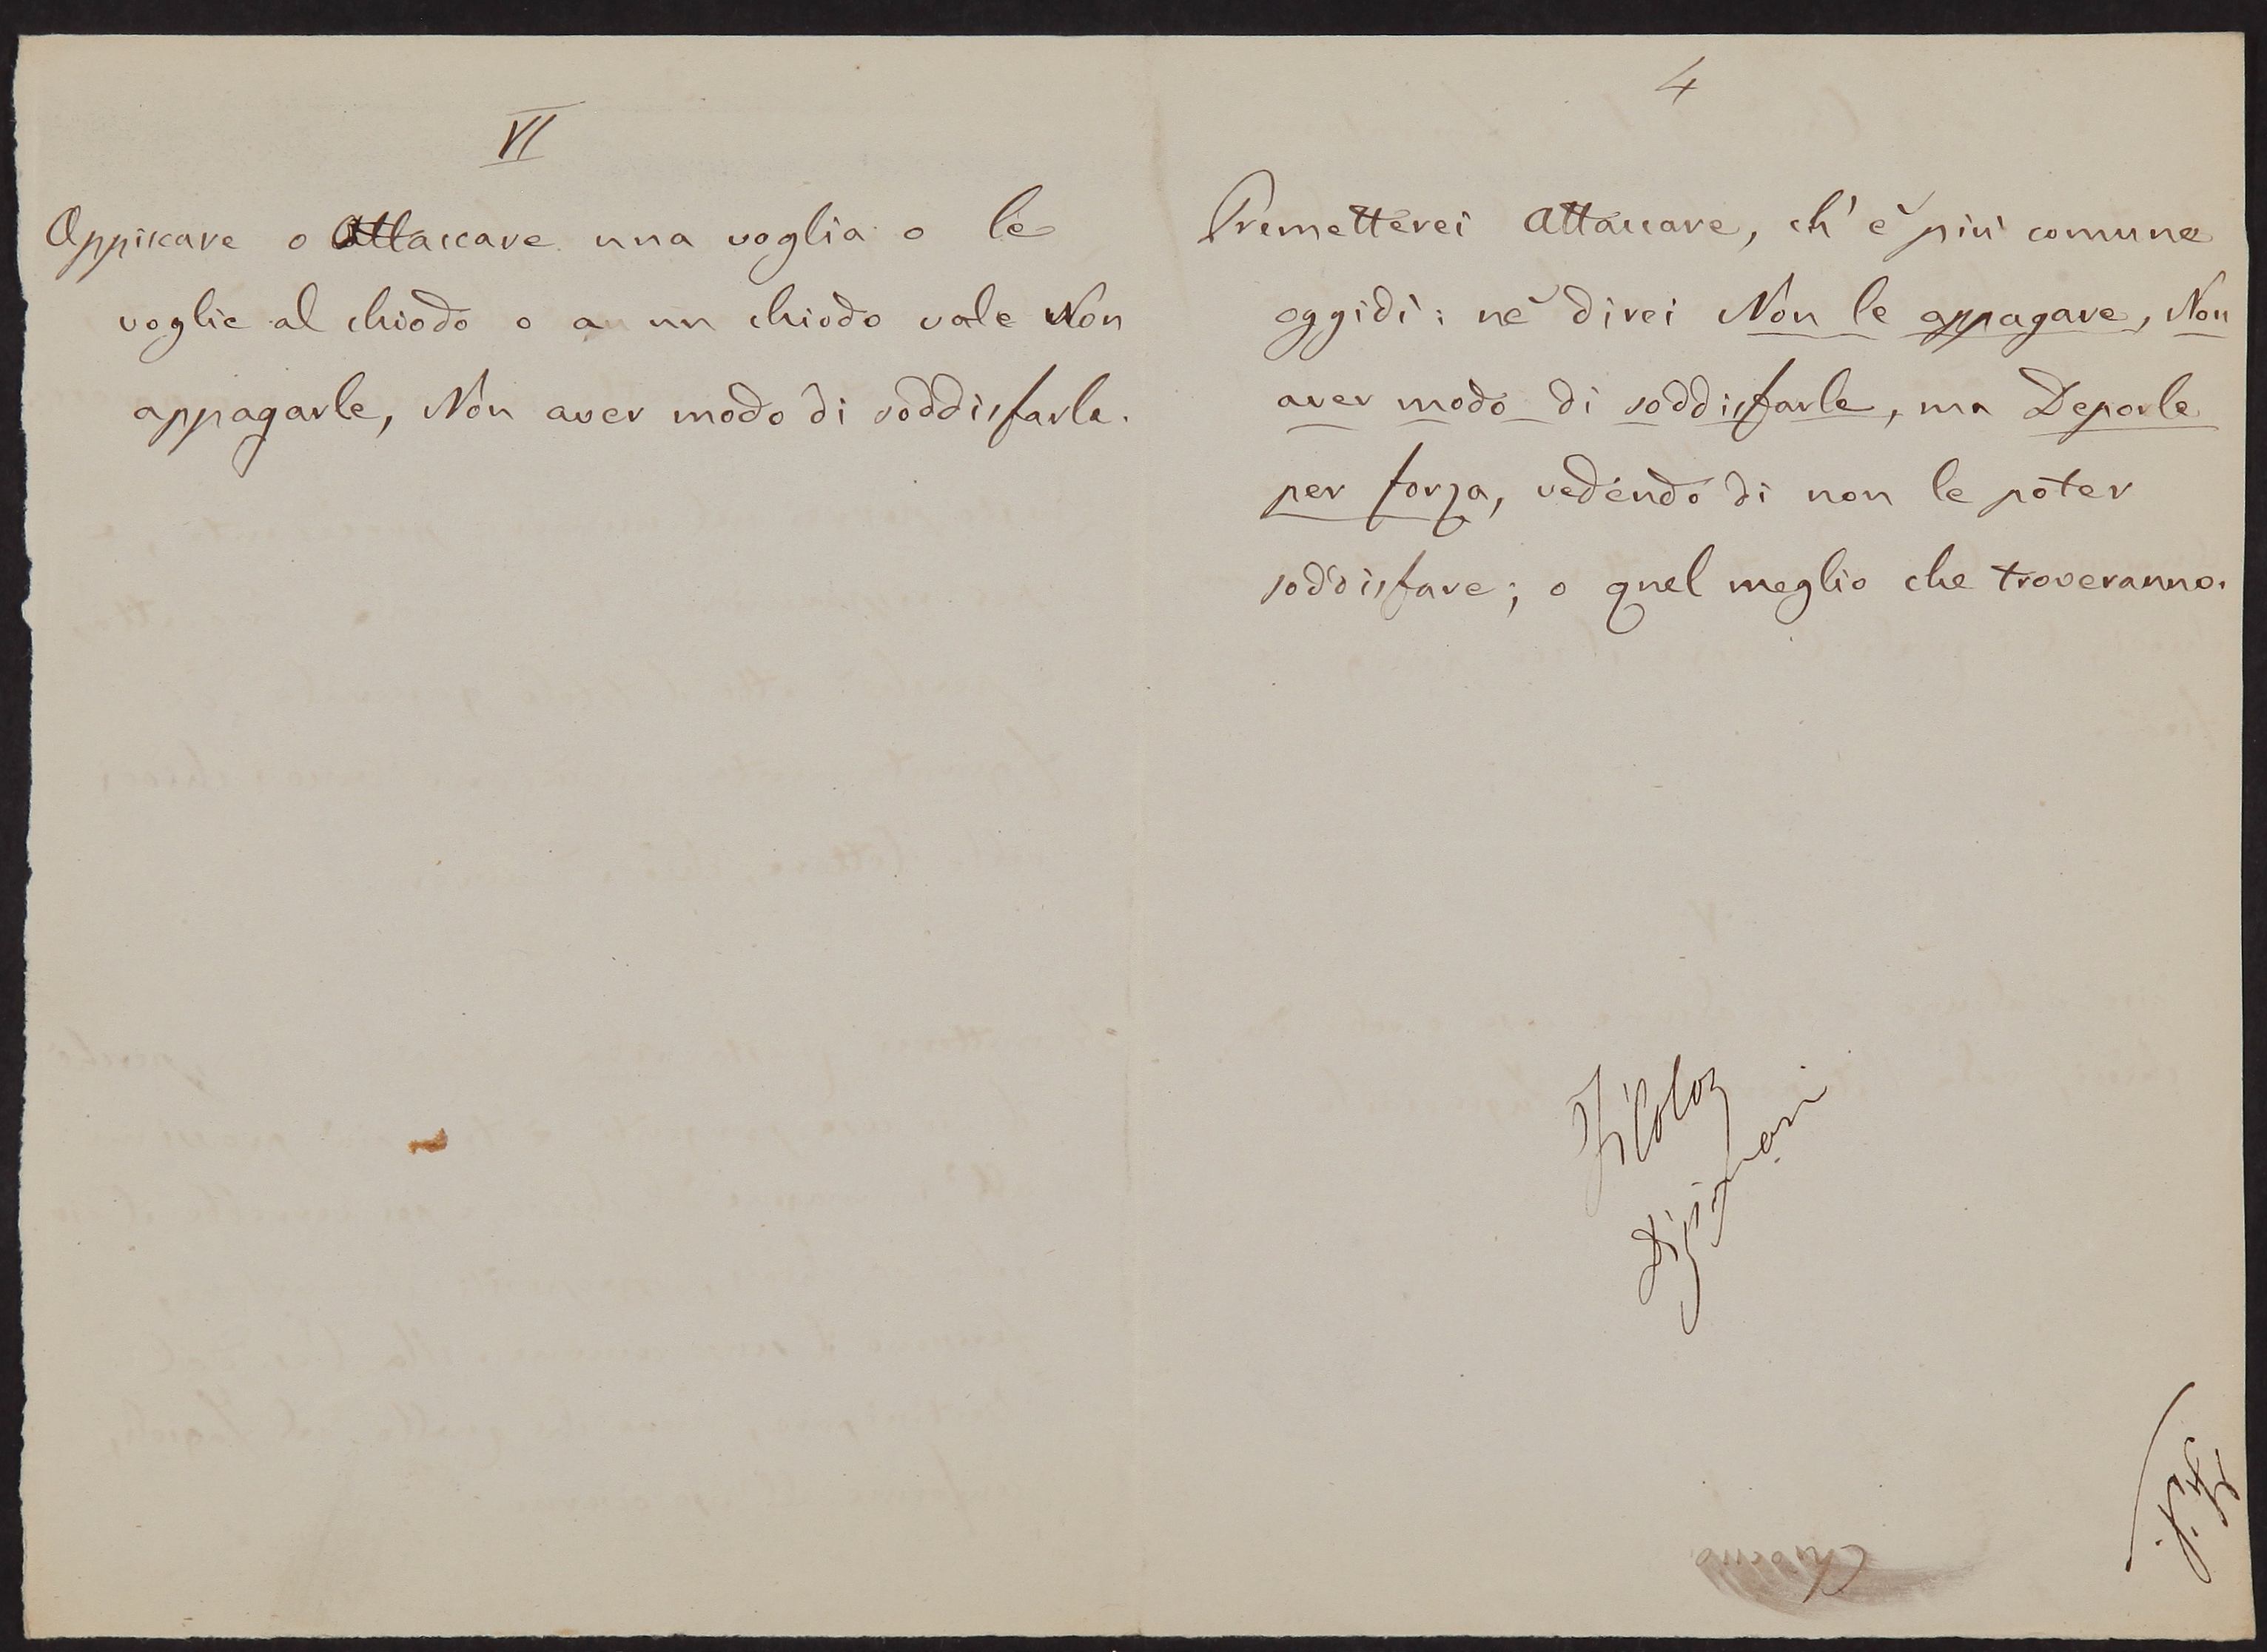 VI
Appiccare o Attaccare una voglia o le
voglie al chiodo o a un chiodo vale Non
appagarle, Non aver modo di soddisfarle.
4
Premetterei Attaccare, ch' è più comune
oggidì: nè direi Non le appagare, Non
aver modo di soddisfarle, ma Deporle
per forza, vedendo di non le poter
soddisfare; o quel meglio che troveranno.